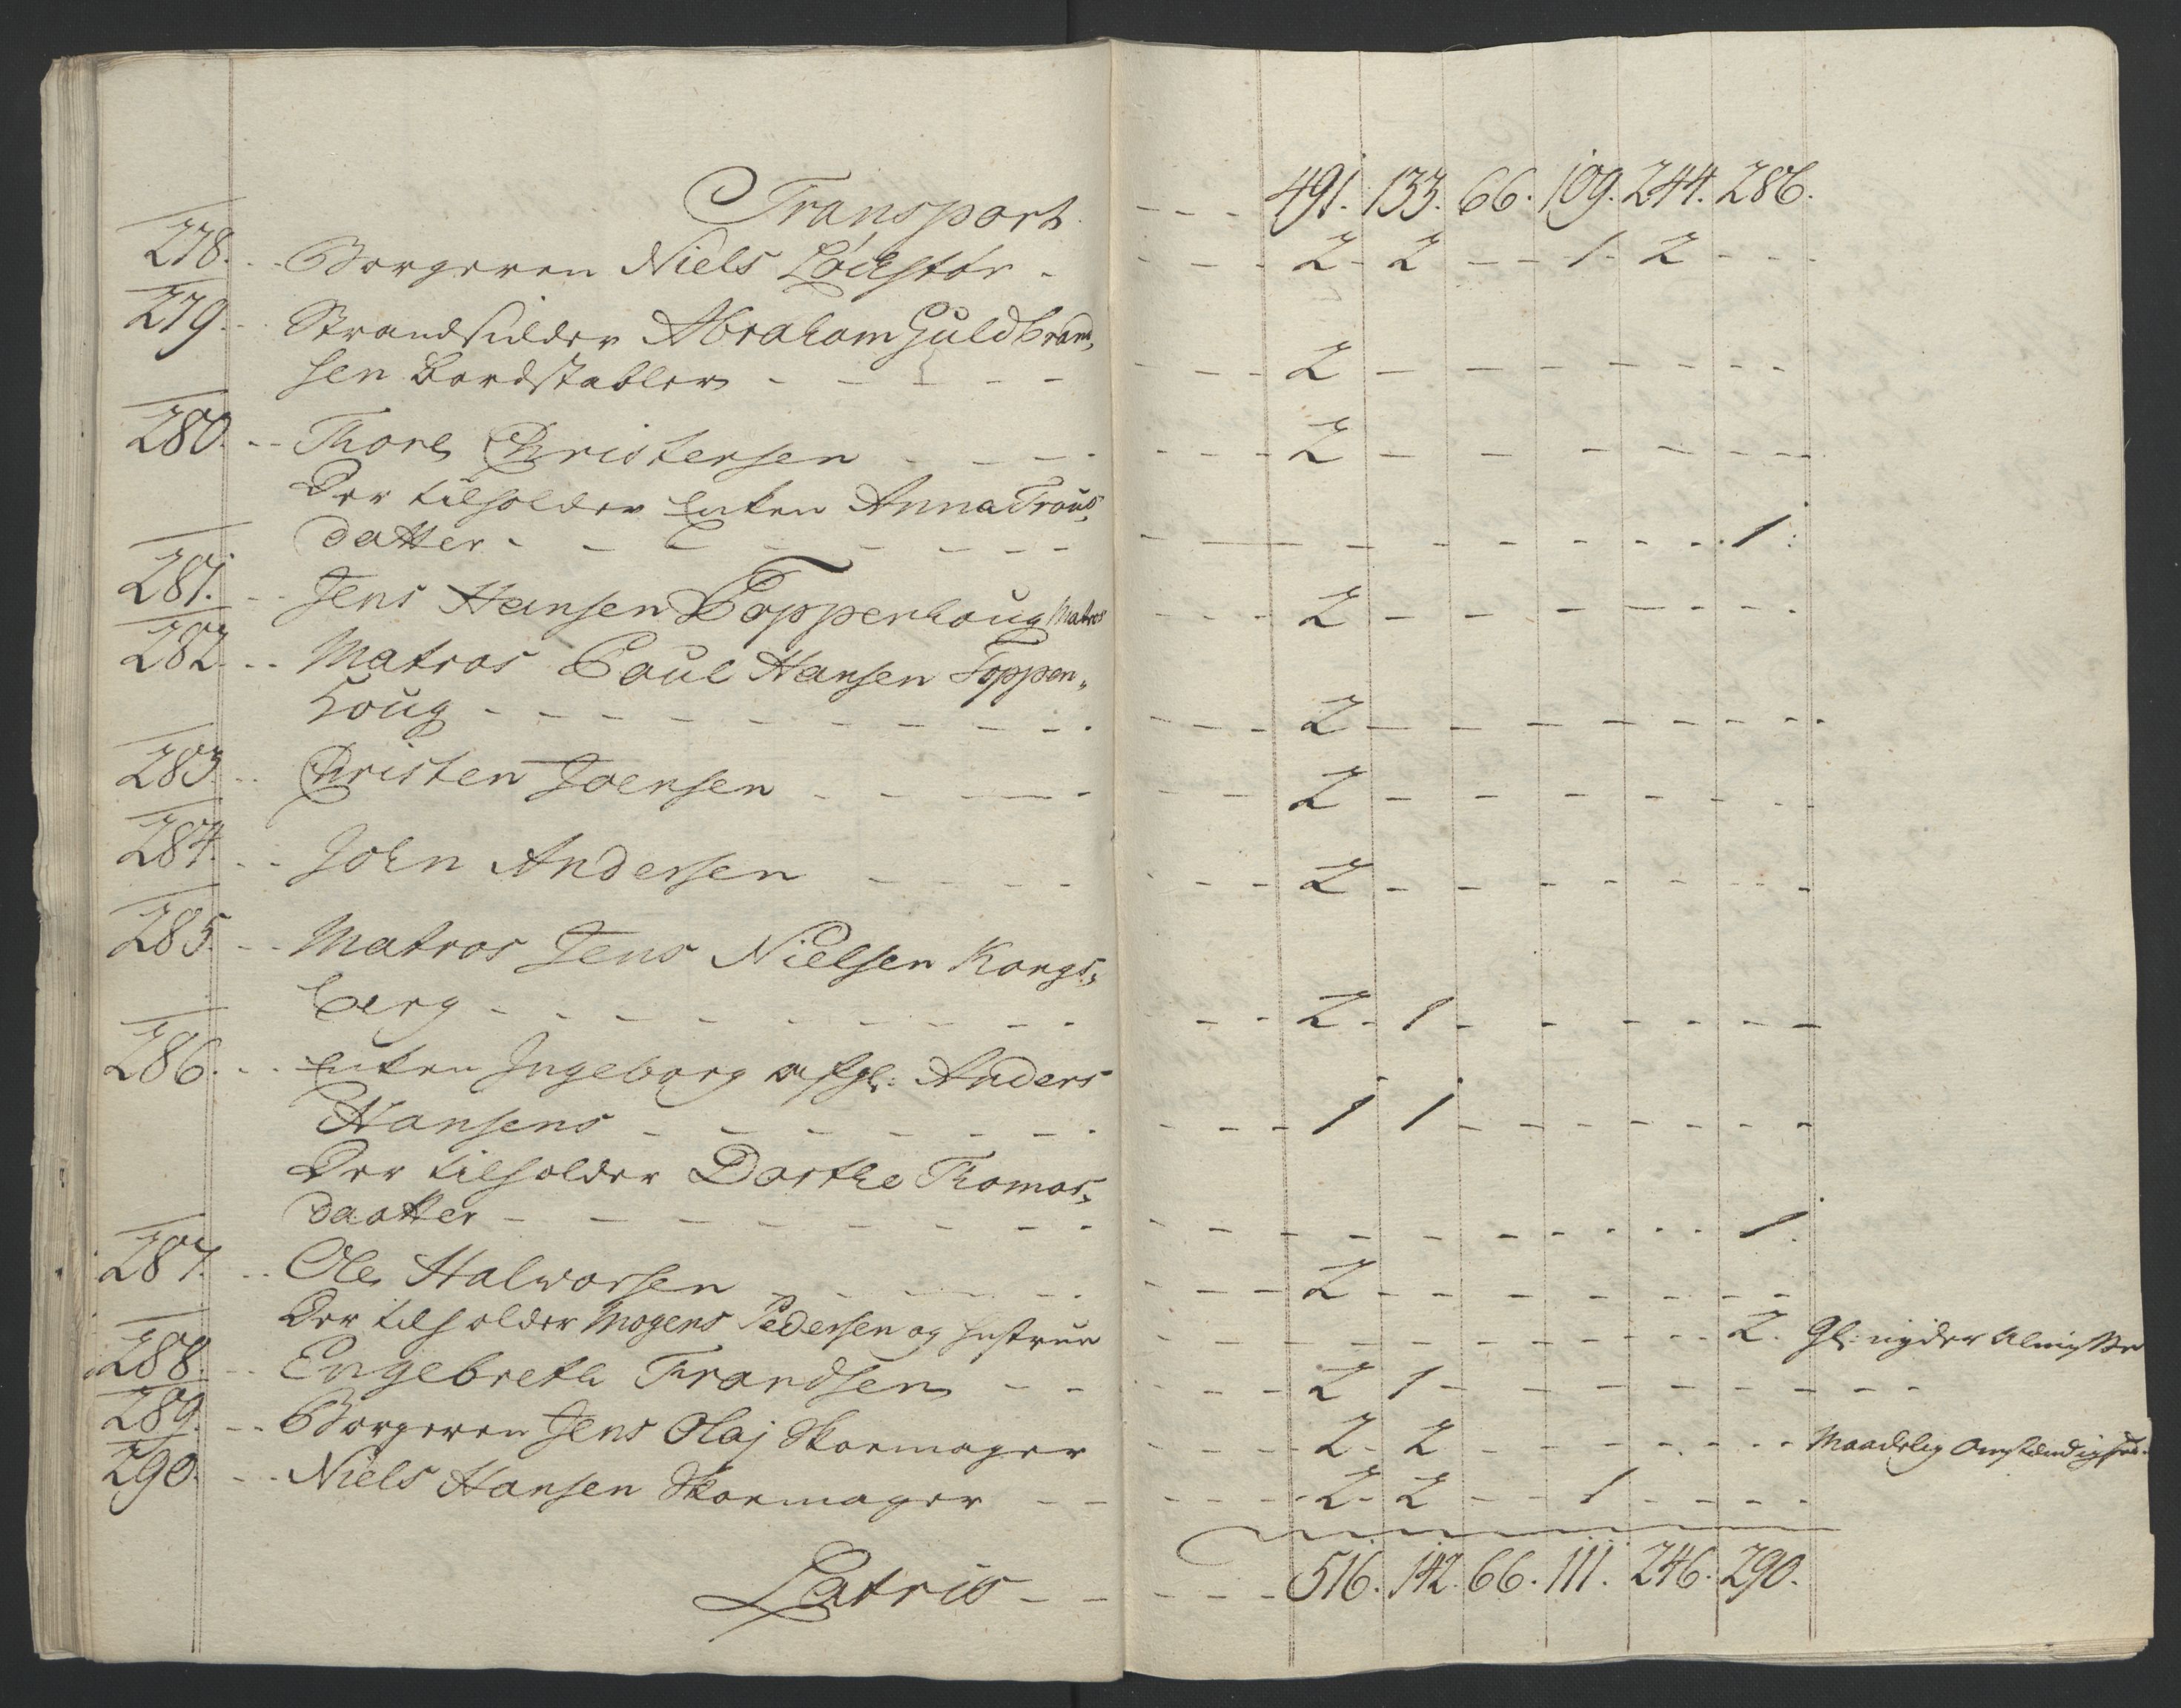 Transport - - - 491. 133. 66. 109. 244. 286.
278. - - Borgeren Niels Löchstör - - - - 2 - 2 - - 1 - 2 - - -
279. - - Strandsidder Abraham Guldbrand,
sen Bordstabler - - - - - - - - 2 - - - - - - - -
280. - - Thore Christensen - - - - - - - - 2 - - - - - - - -
Der tilholder Enken Anna Trous,
datter - - - - - - - - - - - - - - - - 1.
281. - - Jens Hansen Toppenhoug Matros - - - 2 - - - - - - -
282. - - Matros Poul Hansen Toppen,,
houg - - - - - - - - - - - 2 - - - - - - - -
283. - - Christen Joensen - - - - - - 2 - - - - - - -
284. - - John Andersen - - - - - - - 2 - - - - - - -
285. - - Matros Jens Nielsen Kongs,
berg - - - - - - - - - - - 2 - 1 - - - - - - -
286. - - Enken Ingeborg afgl: Anders
Hansens - - - - - - - - - - 1 1 - - - - - - -
Der tilholder Dorthe Thomas,
daatter - - - - - - - - - - - - - - - - - 1.
287. - - Ole Halworsen - - - - - - - 2 - - - - - - -
Der tilholder Mogens Pedersen og Hustrue - - - - - - - - - - 2. Gl: nyder Almisse
288. - - Engebreth Frandsen - - - - - - 2 1 - - - - - - - -
289. - - Borgeren Jens Olaj Skoemager - - - - 2 - 2 - - - - - - - Maadelig Omstændighed.
290. - - Niels Hansen Skoemager - - - - - - 2 - 2 - - 1 - - - -
Latris - - - - - 516. 142. 66. 111. 246. 290.